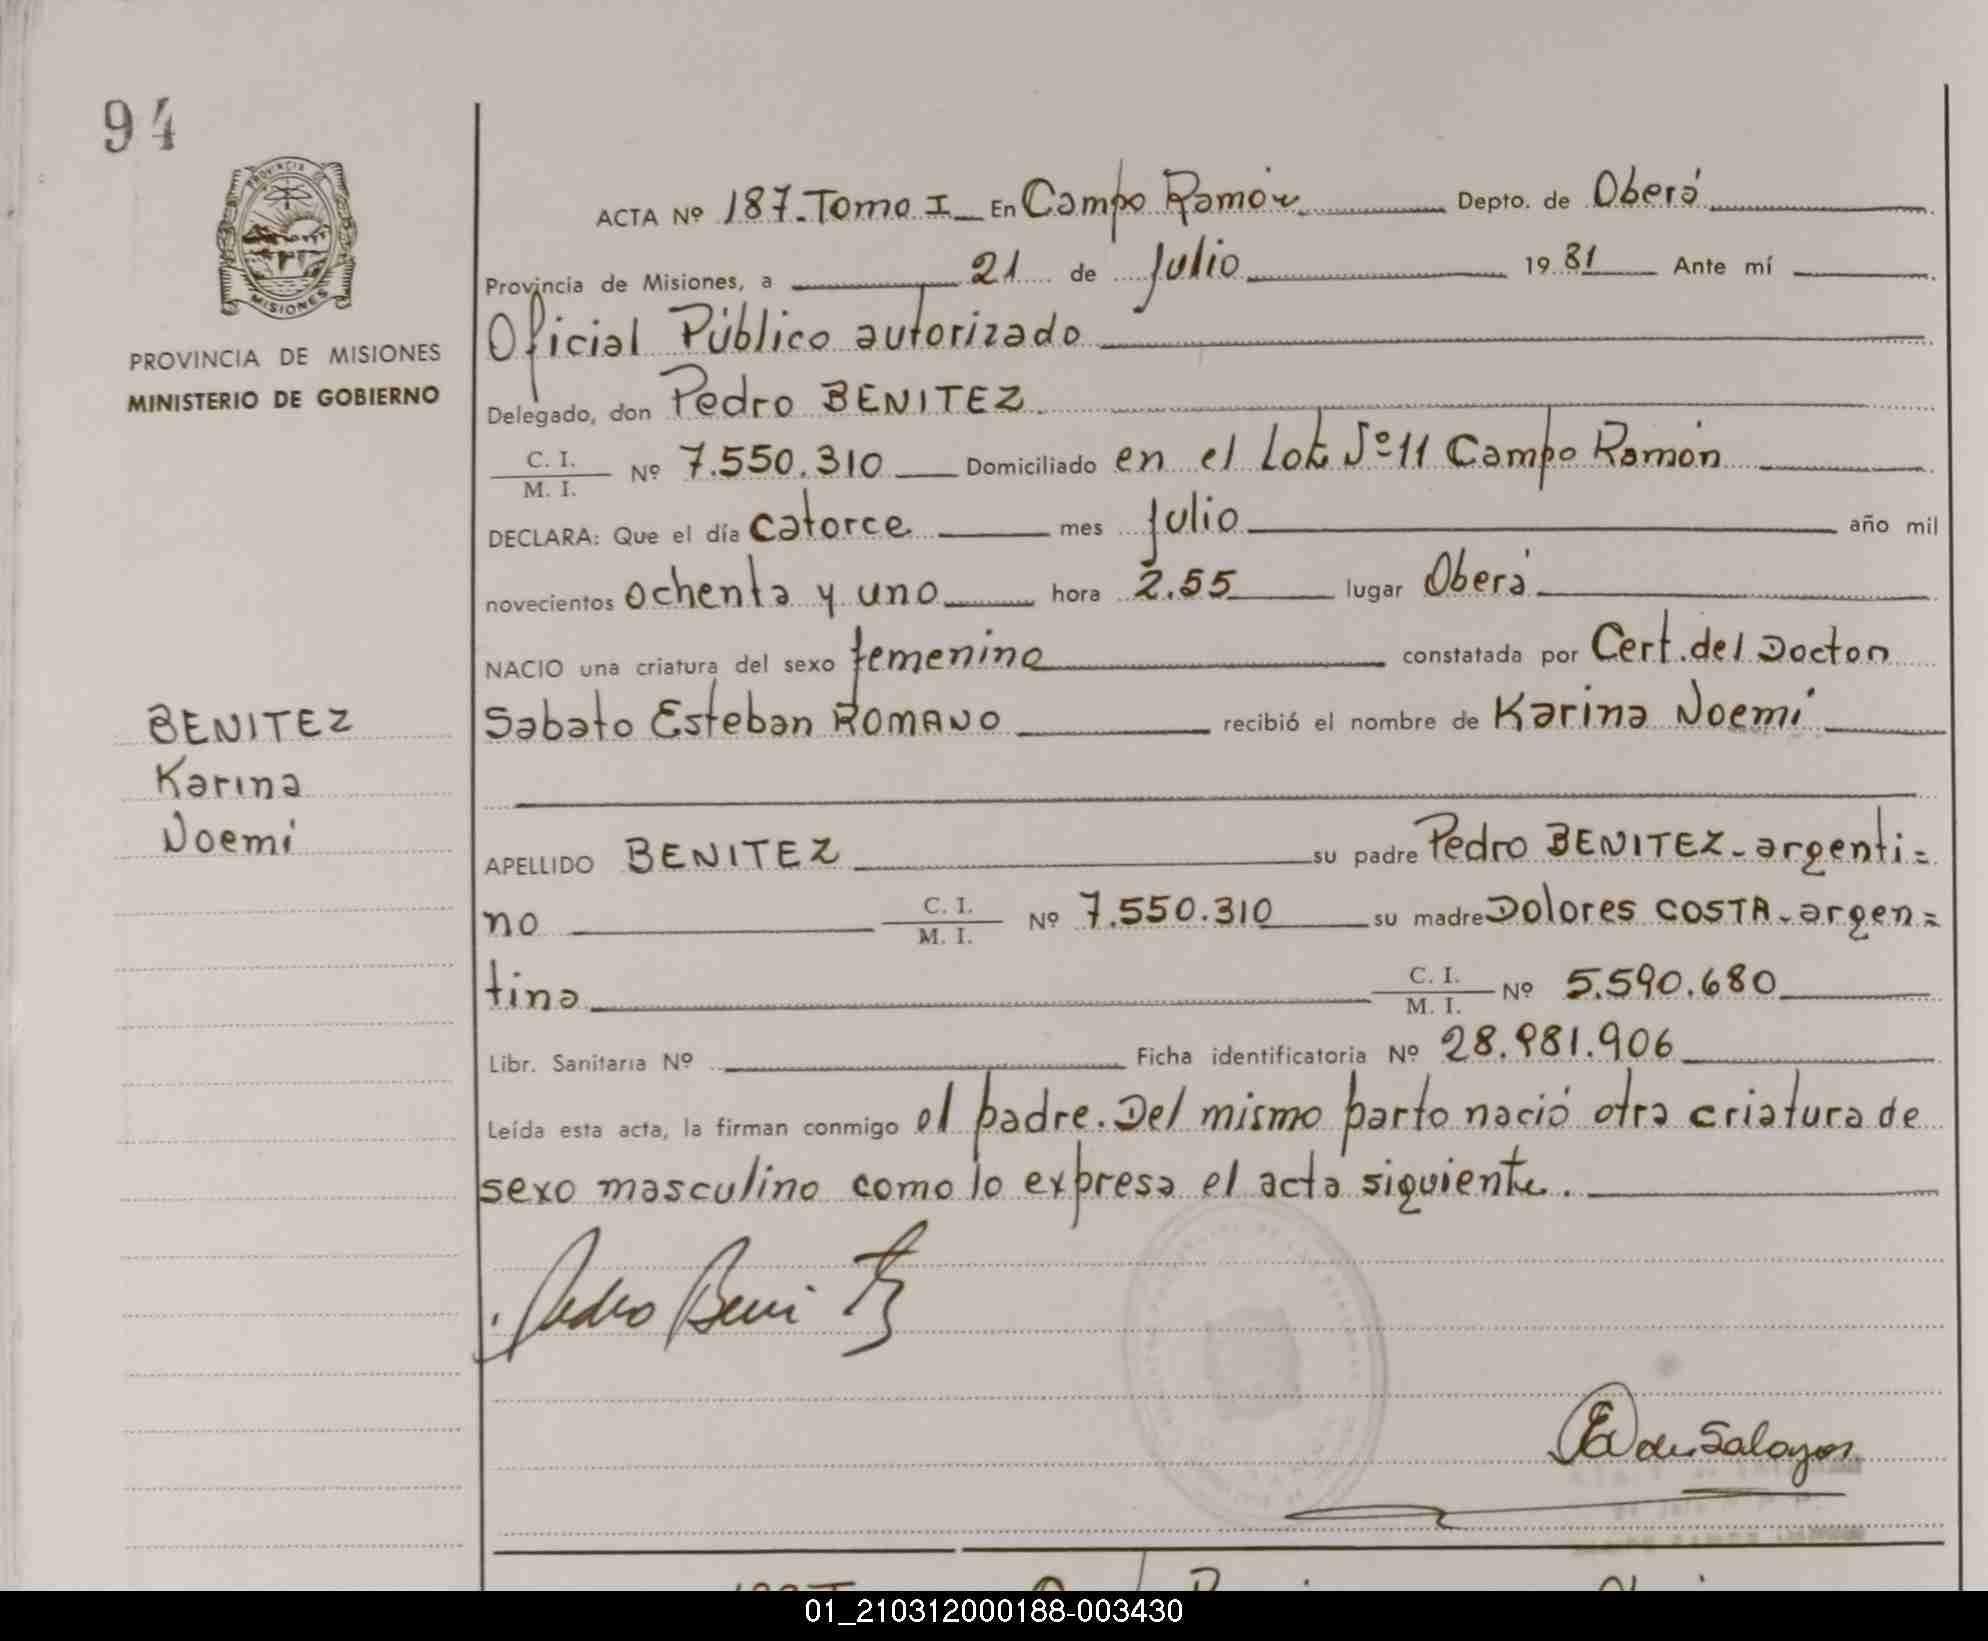 94
PROVINCIA DE
MISIONES
PROVINCIA DE MISIONES
MINISTERIO DE GOBIERNO
BENITEZ
Karina
Noemí
ACTA Nº 187-Tomo I En Campo Ramón Depto. de Oberá
Provincia de Misiones, a 21 de Julio 1981 Ante mí
Oficial Público autorizado
Delegado, don Pedro BENITEZ
C. I. / M. I. Nº 7.550.310 Domiciliado en el Lote Nº 11 Campo Ramón
DECLARA: Que el día catorce mes Julio año mil
novecientos ochenta y uno hora 2.55 lugar Oberá
NACIO una criatura del sexo femenino constatada por Cert. del Doctor
Sabato Esteban ROMANO recibió el nombre de Karina Noemí
APELLIDO BENITEZ su padre Pedro BENITEZ - argenti=
no C. I. / M. I. Nº 7.550.310 su madre Dolores COSTA - argen=
tina C. I. / M. I. Nº 5.590.680
Libr. Sanitaria Nº Ficha identificatoria Nº 28.981.906
Leída esta acta, la firman conmigo el padre. Del mismo parto nació otra criatura de
sexo masculino como lo expresa el acta siguiente.
Pedro Benitez
01_210312000188-003430